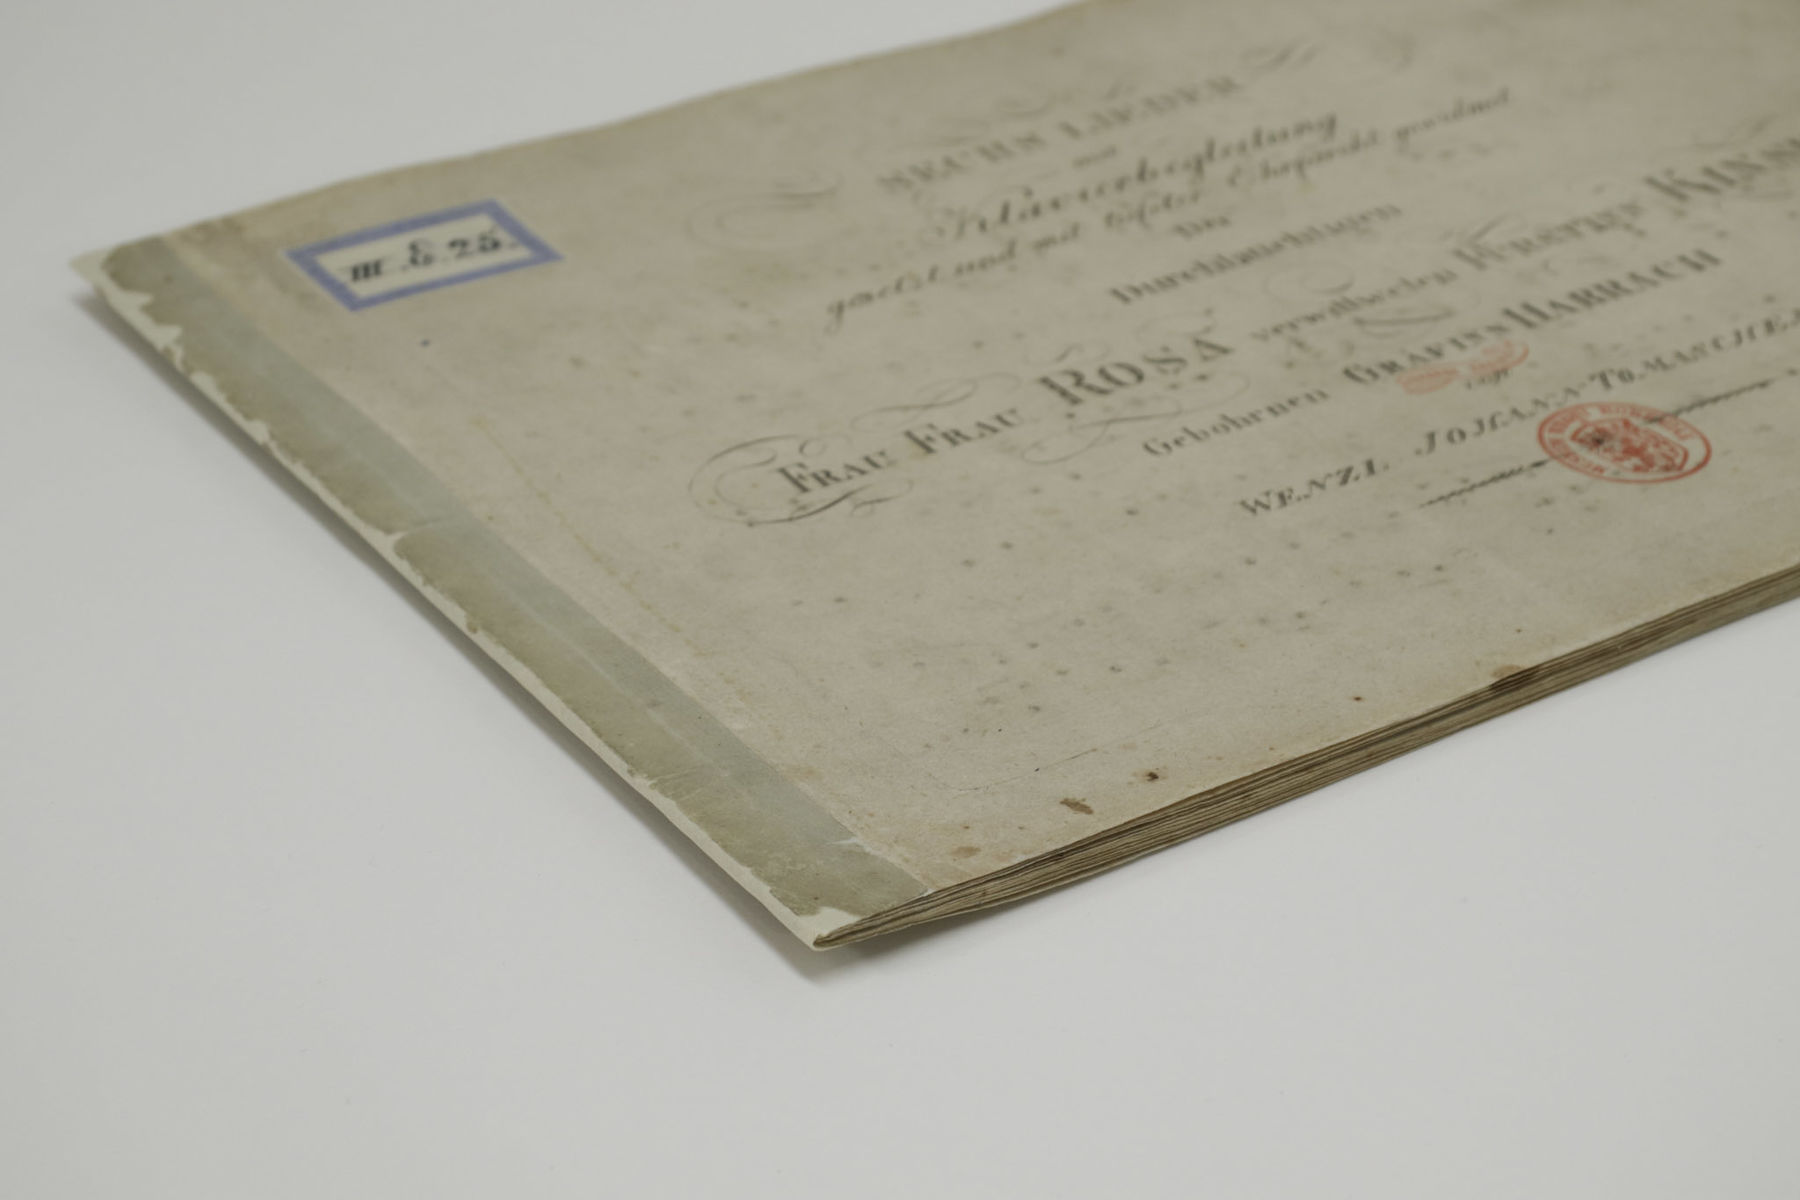 III.C.25.
SECHS LIEDER
mit
Klavierbegleitung
gesetzt und mit tiefster Ehrfurcht gewidmet
Der
Durchlauchtigen
FRAU FRAU ROSA verwittweten FÜRSTIN KINS
Gebohrnen GRÄFINN HARRACH
von
WENZL JOHANN TOMASCHEK